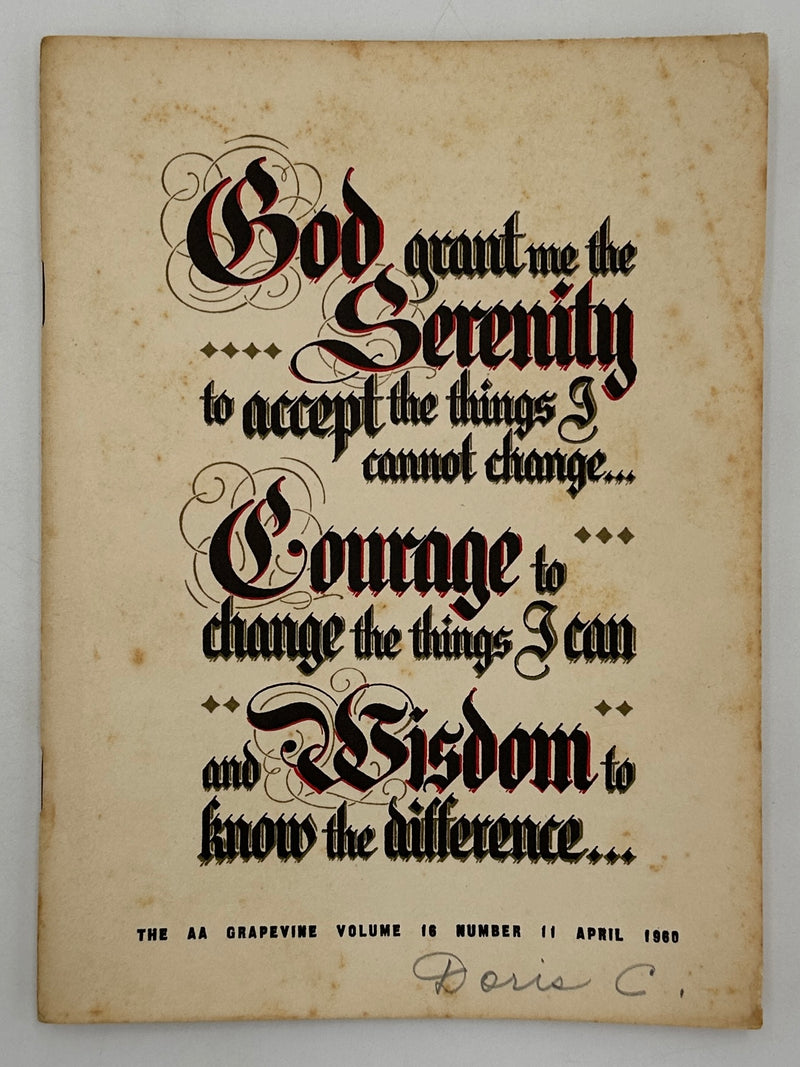 God grant me the
Serenity
to accept the things I
cannot change...
Courage to
change the things I can
and Wisdom to
know the difference...
THE AA GRAPEVINE VOLUME 16 NUMBER 11 APRIL 1960
Doris C.